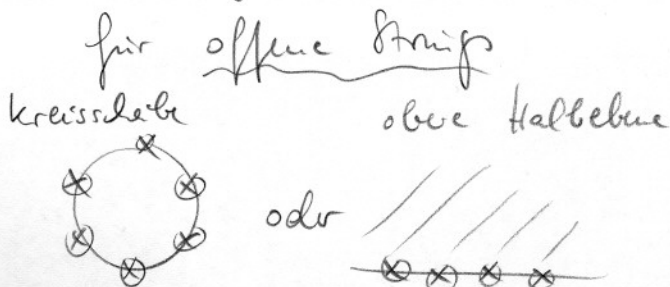 für offene Strings
Kreisscheibe obere Halbebene
oder